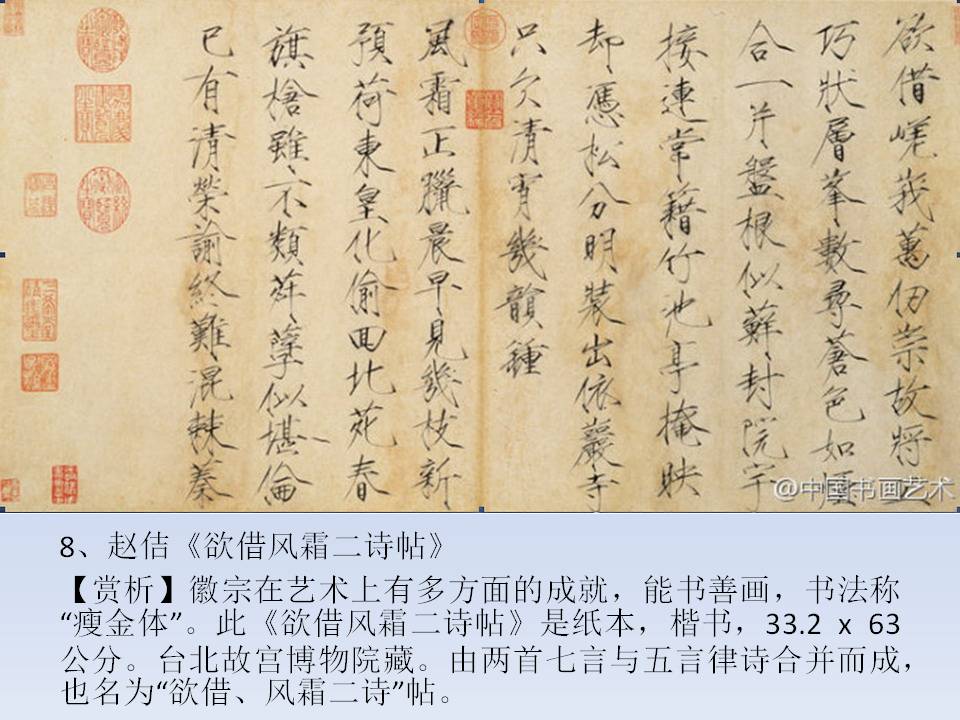 欲借嵯峩萬仞崇故將工
巧狀層峯數尋蒼色如煙
合一片盤根似蘚封院宇
接連常籍竹池亭掩映
却憑松分明裝出依巖寺
只欠清宵幾韻鍾
風霜正臘晨早見幾枝新
預荷東皇化偷回北苑春
旗槍雖不類荈孽似堪倫
已有清榮諭終難混棘蓁
@中国书画艺术
8、赵佶《欲借风霜二诗帖》
【赏析】徽宗在艺术上有多方面的成就，能书善画，书法称
“瘦金体”。此《欲借风霜二诗帖》是纸本，楷书，33.2 x 63
公分。台北故宫博物院藏。由两首七言与五言律诗合并而成，
也名为“欲借、风霜二诗”帖。